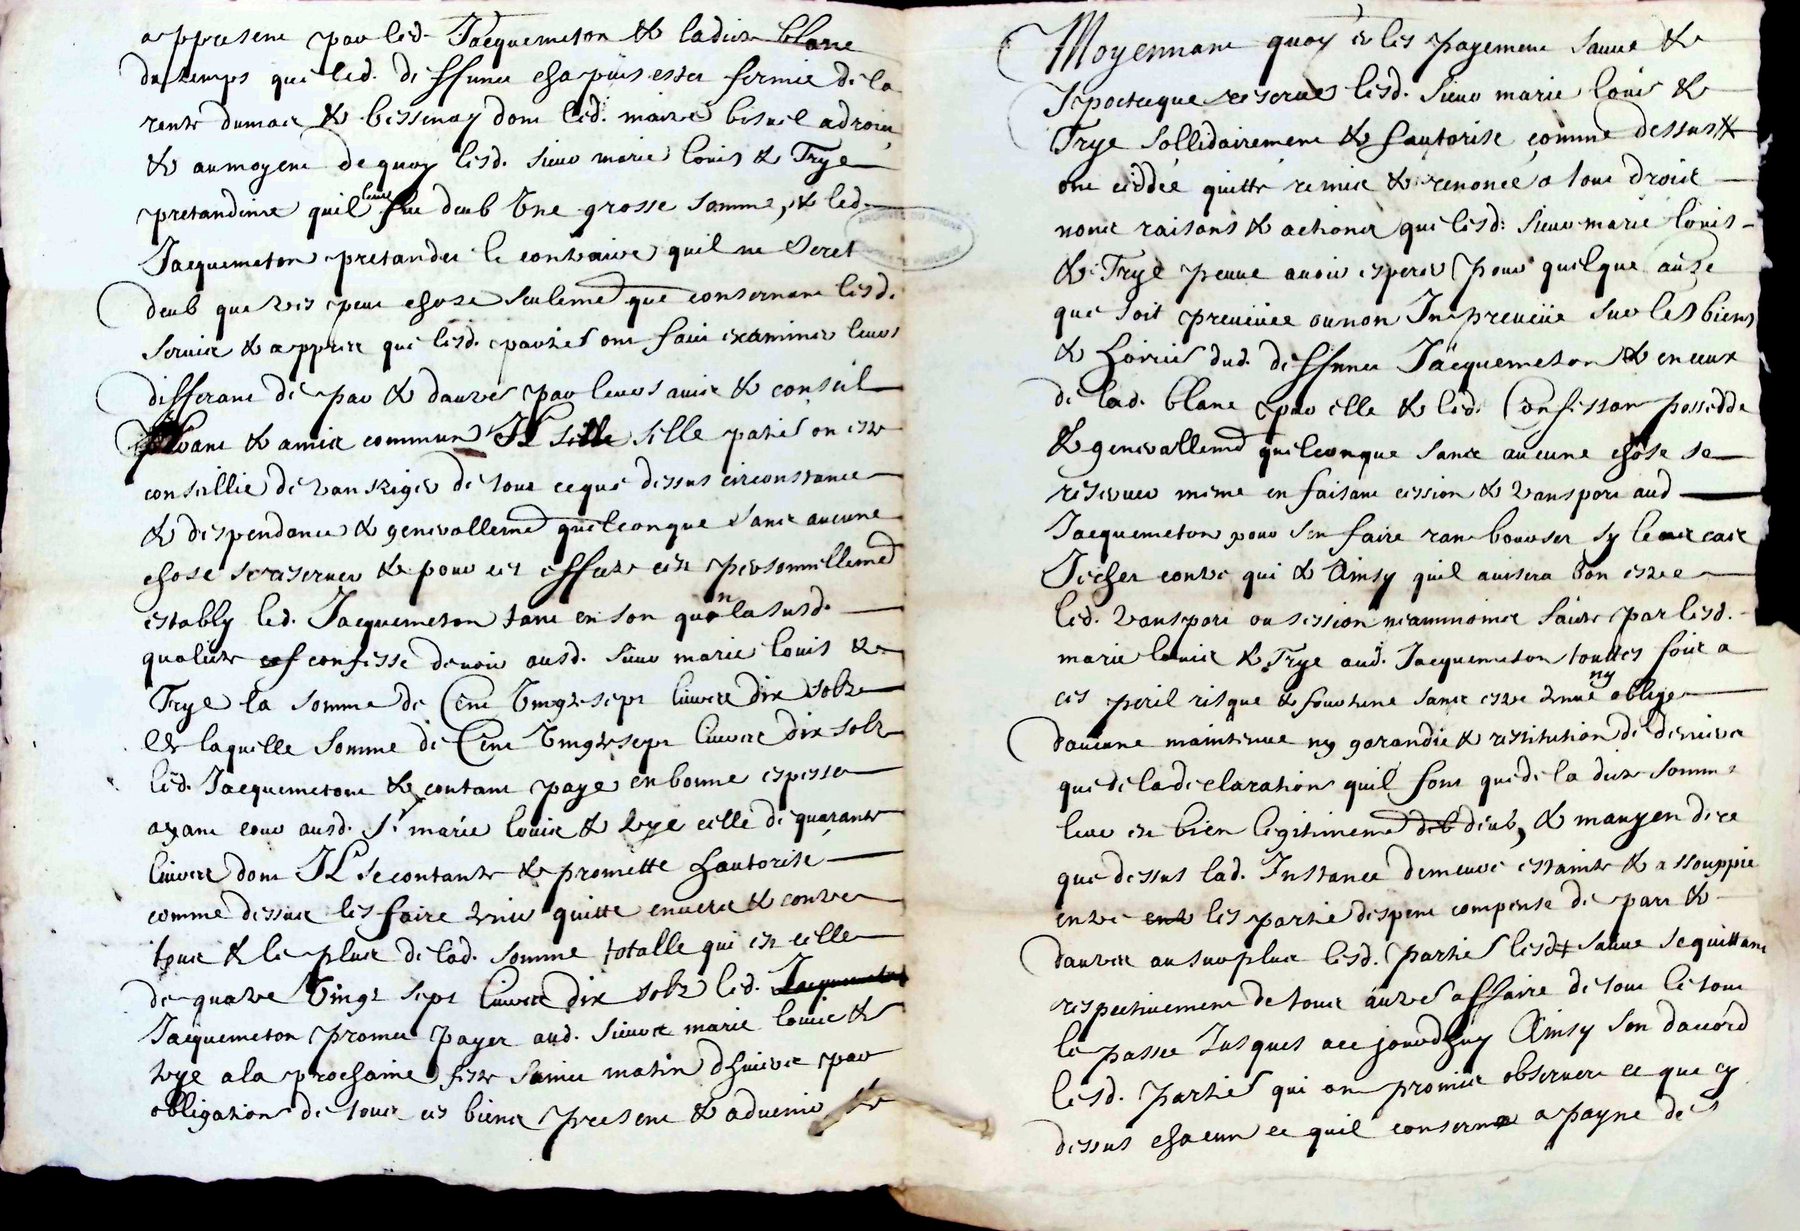 a present par led. Jacquemeton & ladite blanc
du temps que led. deffunct
rente & bessenay dont led. a droict
& au moyent de quoy lesd. sieur marie louis & Trye
pretandirent quil leur fut deub Une grosse somme, & led.
Jacquemeton pretandre le contraire quil ne seret
deub que tres peut chose seulemd que consernant lesd.
servis & appres que lesd. parties ont faict examiner leurs
differant de par & dautre par leurs avis & conseil
& amis commun Il selle selle parties on este
conseillie de transhiger de tout ceque dessus circonstance
& despendance & generallemd quelconque sans aucune
chose se reserver & pour cet effecte est personnellemd
estably led. Jacquemeton tant en son quon la susd.
qualitte confesse devoir ausd. sieur marie louis &
Trye la somme de Cent Vingt sept livres dix solz
laquelle somme de Cent Vingt sept livres dix solz
led. Jacquemeton & contant paye en bonne espesse
ayant cour ausd. Sr marie louis & trye celle de quarante
livres dont Il se contante & promette & autorise
comme dessus les faire tenir quitte envers & contre
tous & le plus de lad. somme totalle qui est celle
de quatre Vingt sept livres dix solz led. Jacquemeton
Jacquemeton promet payer aud. sieurs marie louis &
trye a la prochaine feste sainct matin dhivers par
obligation de tous ces biens present & advenir &
Moyennant quoy & les payement sauve &
Ipotecque reserves lesd. sieur marie louis &
Trye sollidairement & s autorise comme dessus &
ont ceddée quitte remise & renoncé a tout droict
noms raisons & actions que lesd. sieur marie louis
& Trye peuve avoir esperer pour quelque cause
que soit preveüee ou non Inpreveüe sur les biens
& hoiries dud. deffunct Jacquemeton & en ceux
de lad. blanc par elle & led. Confesson possedde
& generallemd quelconque sans aucune chose se
reserver meme en faisant cession & transport aud
Jacquemeton pour sen faire ranbourser sy le cas
Jechet contre qui & Ainsy quil avisera bon estre
led. transport ou session neammoins faitte par lesd.
marie louis & Trye aud. Jacquemeton touttes fois a
ces peril risque & fourtune sans estre tenue ny oblige
daucune maintenue ny garandie & restitution de deniers
que de la declaration quil font que de la ditte somme
leur est bien legitimemend deb deub, & moyen de ce
que dessus lad. Instance demeure estainte & assouppie
entre ent les partie despent compense de part &
dautre au surplus lesd. parties lesd & sauve se quittant
respectivement de tous autres affaire de tout le tout
le passee Jusques a ce jourdhuy Ainsy son daccord
lesd. parties qui on promis observer ce que cy
dessus chacun ce quil conserne a payne des